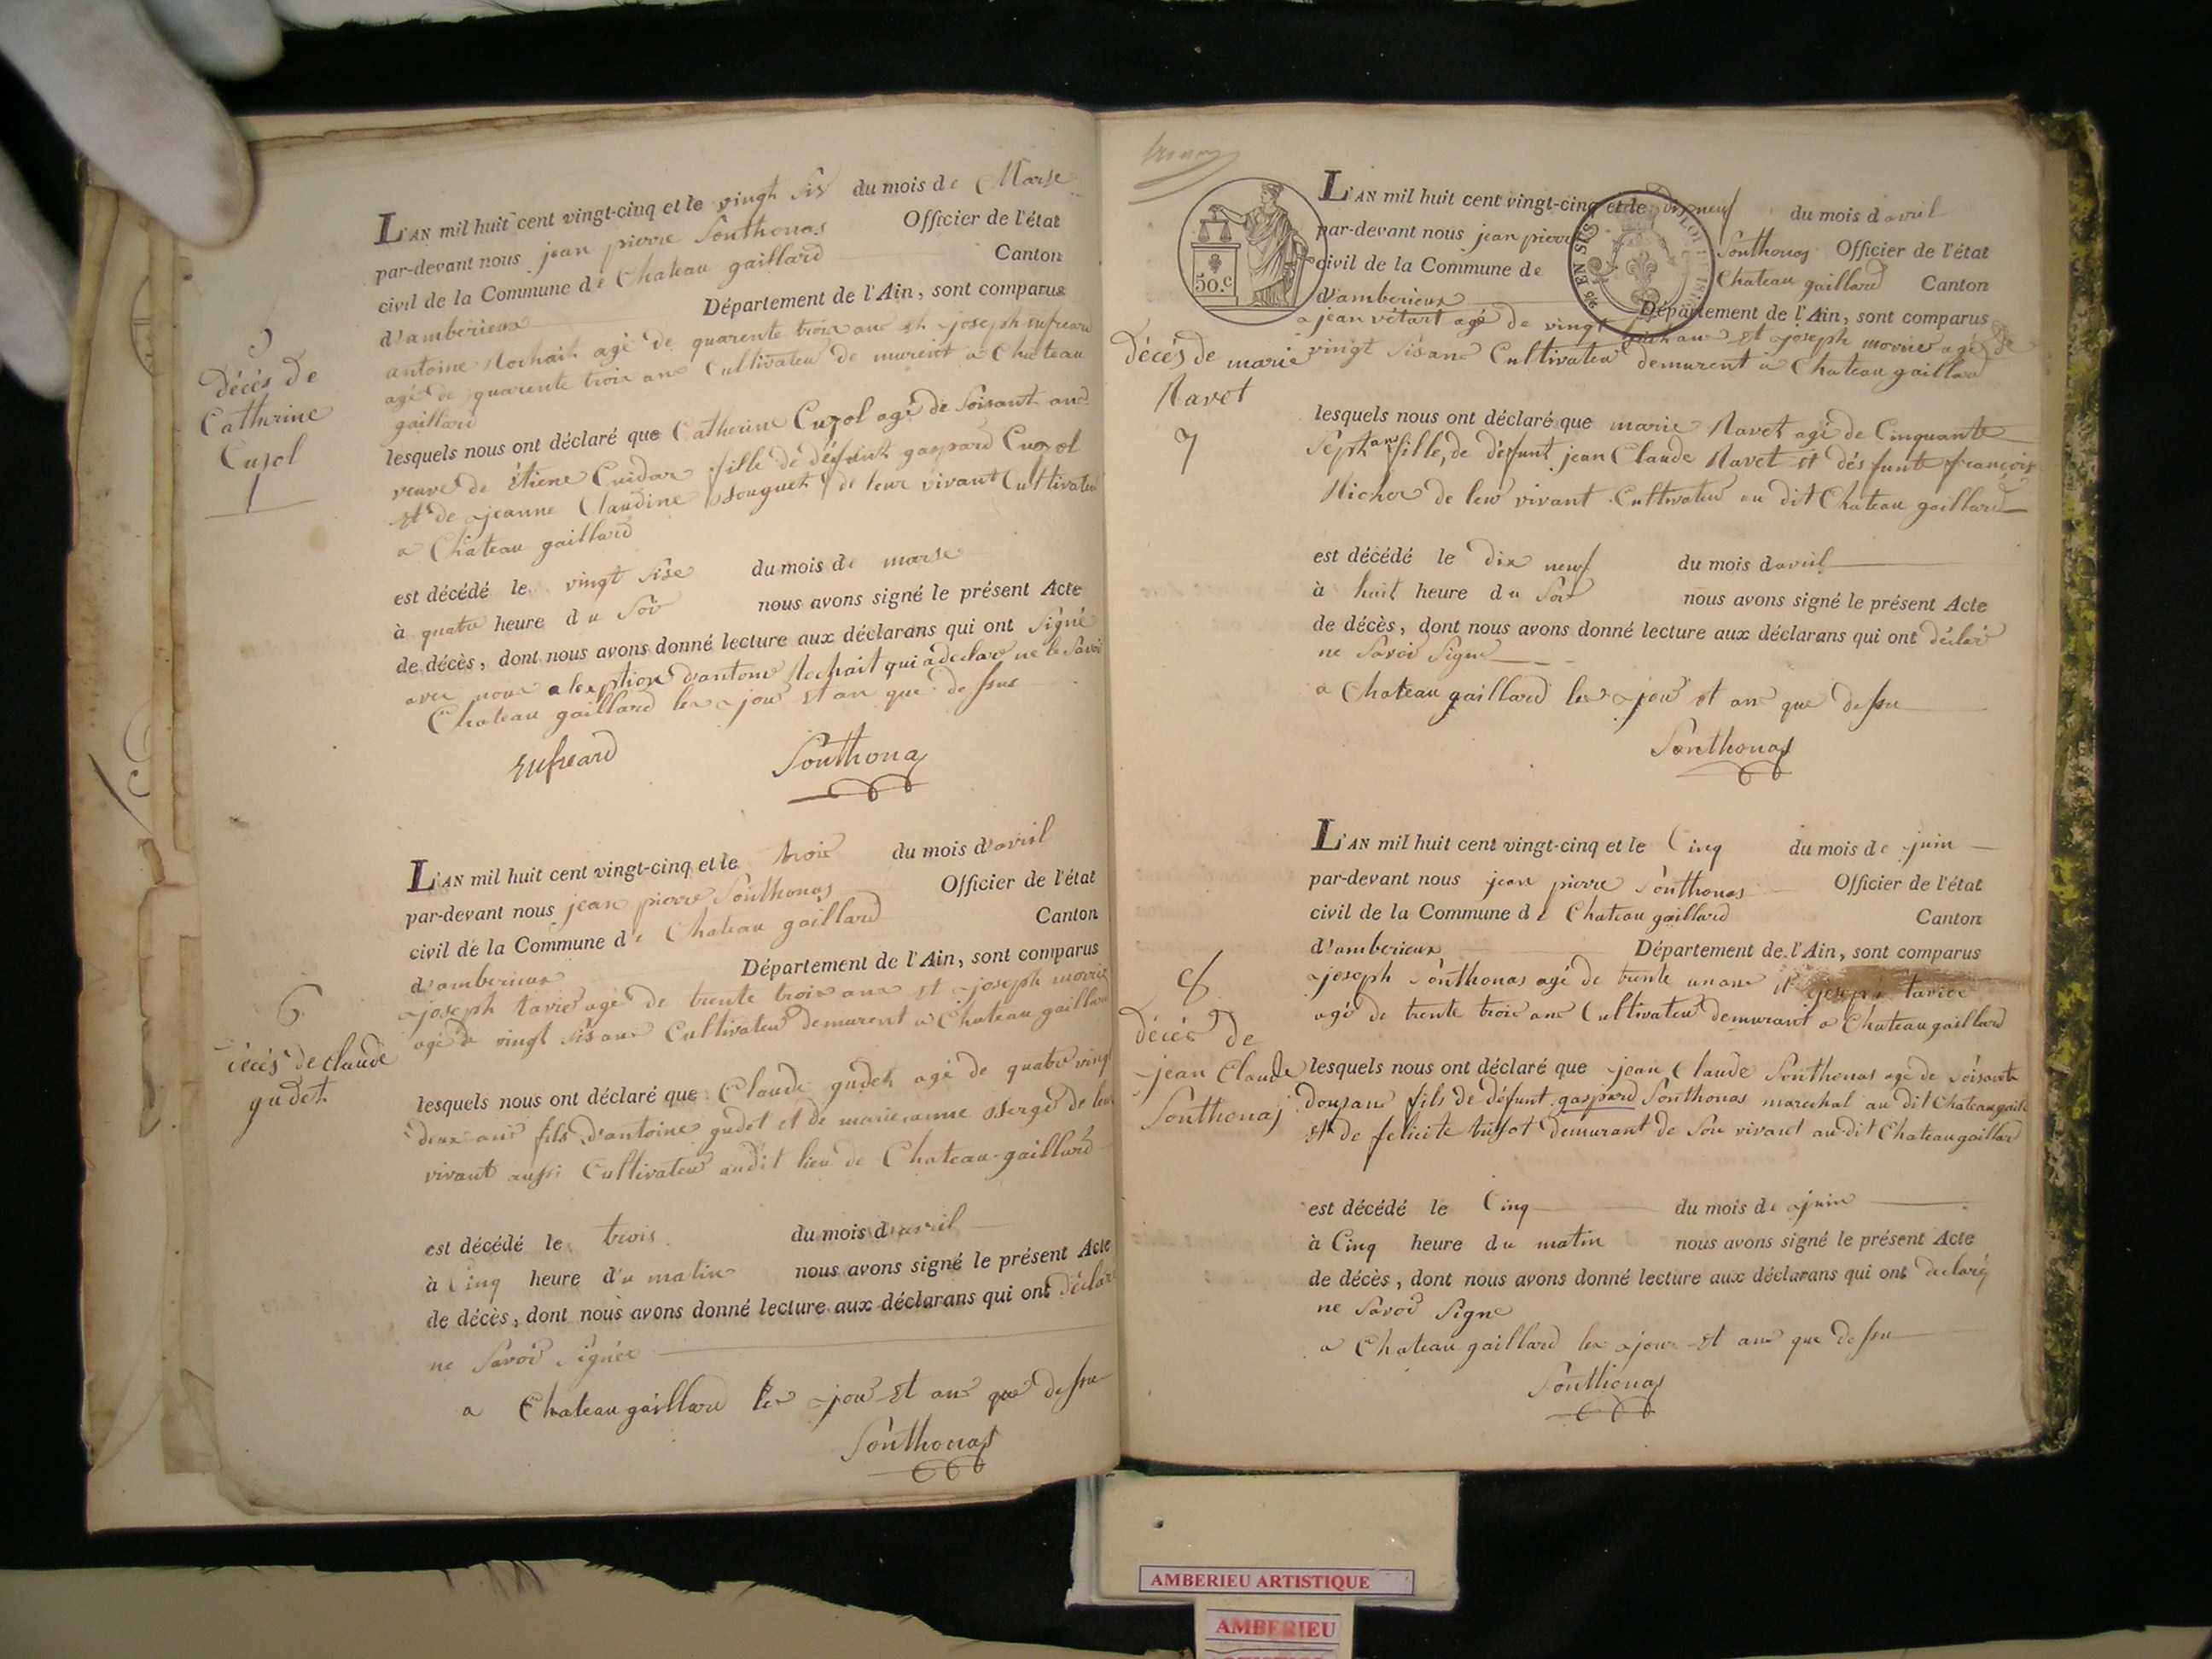 L'AN mil huit cent vingt-cinq et le vingt sis du mois de Marse
par-devant nous jean pierre Sonthonas Officier de l'état
civil de la Commune de Chateau gaillard Canton
d'amberieux Département de l'Ain, sont comparus
antoine Rochait agé de quarente trois ans et joseph
agé de quarente trois ans Cultivateur demureict a Chateau
gaillard
5
décès de
Catherine
Cujol
lesquels nous ont déclaré que Catherine Cujol agé de Soisant ans
veuve de étiene Cuidar fille de défunt gaspard Cujol
et de jeanne Claudine de leur vivant Cultivateur
a Chateau gaillard
est décédé le vingt sise du mois de marse
à quatre heure du Soir nous avons signé le présent Acte
de décès, dont nous avons donné lecture aux déclarans qui ont signé
avec nous a lexption d'antoine Rochait qui a declaré ne le Savoir
Chateau gaillard les jour et an que dessus
Sonthonas
L'AN mil huit cent vingt-cinq et le trois du mois d'avril
par-devant nous jean pierre Sonthonas Officier de l'état
civil de la Commune de Chateau gaillard Canton
d'amberieux Département de l'Ain, sont comparus
joseph tavier agé de trente trois ans et joseph morier
agé de vingt sis ans Cultivateur demurent a Chateau gaillard
6
décès de claude
gudet
lesquels nous ont déclaré que Claude gudet agé de quatre vingt
deux ans fils d'antoine gudet et de marie anne de leur
vivant aussi Cultivateur audit lieu de Chateau-gaillard
est décédé le trois du mois d'avril
à Cinq heure du matin nous avons signé le présent Acte
de décès, dont nous avons donné lecture aux déclarans qui ont déclaré
ne Savoir Signée
a Chateau gaillard les jour et an que dessu
Sonthonas
50.c
L'AN mil huit cent vingt-cinq et le dix neuf du mois d'avril
par-devant nous jean pierre Sonthonas Officier de l'état
civil de la Commune de Chateau gaillard Canton
d'amberieux Département de l'Ain, sont comparus
jean vétart agé de vingt huit ans et joseph morier agé de
vingt sis ans Cultivateur demurent a Chateau gaillard
décès de marie
Ravet
7
lesquels nous ont déclaré que marie Ravet agé de Cinquante
Sept ans fille, de défunt jean Claude Ravet et désfunte françois
de leur vivant Cultivateur au dit Chateau gaillard
est décédé le dix neuf du mois d'avril
à huit heure du Soir nous avons signé le présent Acte
de décès, dont nous avons donné lecture aux déclarans qui ont déclaré
ne Savoir Signé
a Chateau gaillard les jour et an que dessu
Sonthonas
L'AN mil huit cent vingt-cinq et le Cinq du mois de juin
par-devant nous jean pierre Sonthonas Officier de l'état
civil de la Commune de Chateau gaillard Canton
d'amberieux Département de l'Ain, sont comparus
joseph Sonthonas agé de trente un ans et joseph tavier
agé de trente trois ans Cultivateur demurant a Chateau gaillard
8
décès de
jean Claude
Sonthonas
lesquels nous ont déclaré que jean Claude Sonthonas agé de Soisante
douzans fils de défunt gaspard Sonthonas marechal au dit Chateau gaill
et de felicite demurant de Son vivant au dit Chateau gaillard
est décédé le Cinq du mois de juin
à Cinq heure du matin nous avons signé le présent Acte
de décès, dont nous avons donné lecture aux déclarans qui ont declaré
ne Savoir Signé
a Chateau gaillard les jour et an que dessu
Sonthonas
AMBERIEU ARTISTIQUE
AMBERIEU